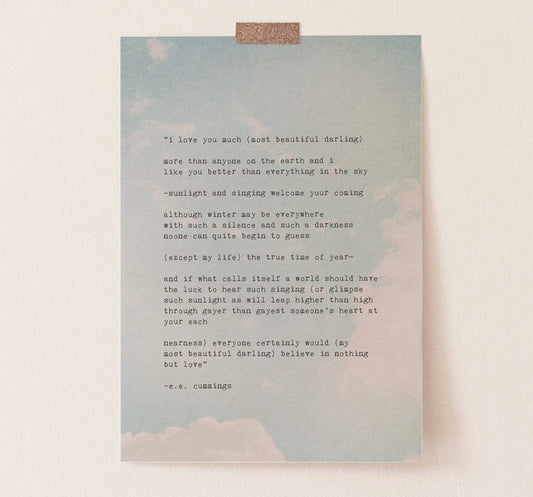 "i love you much (most beautiful darling)
more than anyone on the earth and i
like you better than everything in the sky
-sunlight and singing welcome your coming
although winter may be everywhere
with such a silence and such a darkness
noone can quite begin to guess
(except my life) the true time of year-
and if what calls itself a world should have
the luck to hear such singing (or glimpse
such sunlight as will leap higher than high
through gayer than gayest someone's heart at
your each
nearness) everyone certainly would (my
most beautiful darling) believe in nothing
but love"
-e.e. cummings